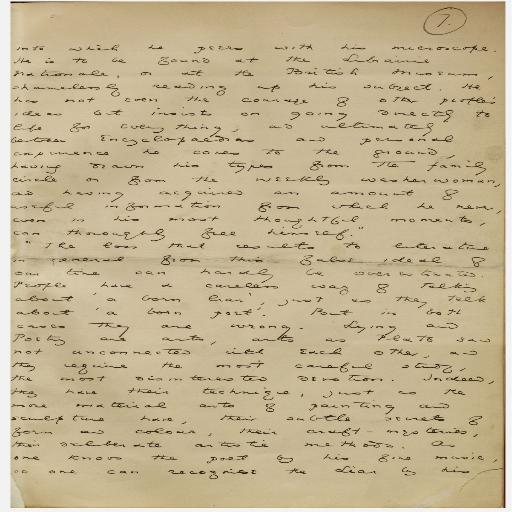 7.
into which he peers with his microscope.
He is to be found at the Librairie
Nationale, or at the British Museum,
shamelessly reading up his subject. He
has not even the courage of other people's
ideas but insists on going directly to
life for everything, and ultimately
between Encyclopaedias and personal
experience he comes to the ground,
having drawn his types from the family
circle or from the weekly washerwoman,
and having acquired an amount of
useful information from which he never,
even in his most thoughtful moments,
can thoroughly free himself."
"The loss that results to literature
in general from this false ideal of
our time can hardly be overestimated.
People have a careless way of talking
about 'a born liar', just as they talk
about 'a born poet'. But in both
cases they are wrong. Lying and
Poetry are arts, arts as Plato saw
not unconnected with each other, and
they require the most careful study,
the most disinterested devotion. Indeed,
they have their technique, just as the
more material arts of painting and
sculpture have, their subtle secrets of
form and colour, their craft-mysteries,
their deliberate artistic methods. As
one knows the poet by his fine music,
so one can recognise the liar by his